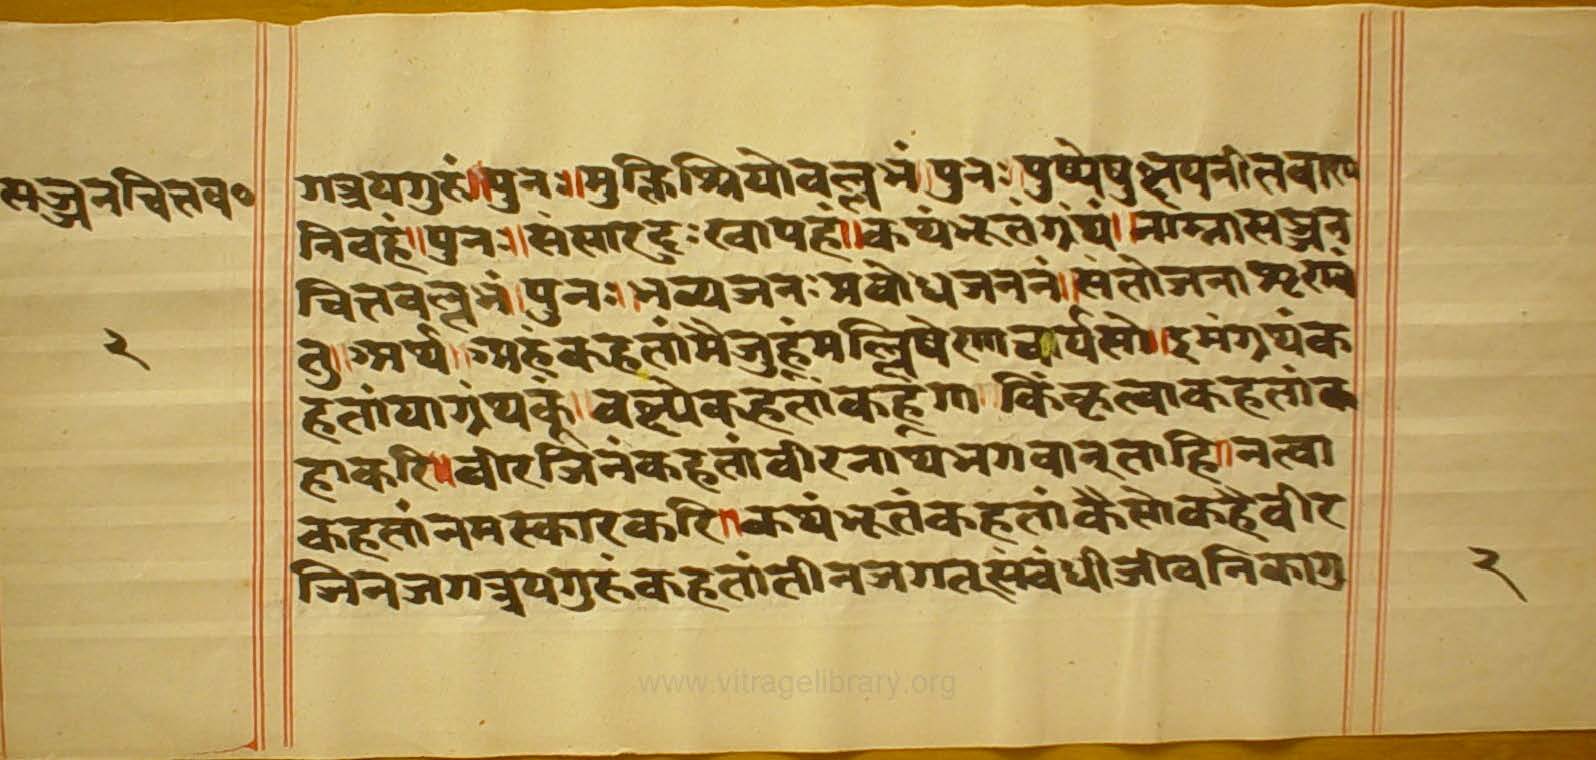 सज्जनचित्तव॰
गत्रयगुरुं॥पुनः॥मुक्तिश्रियोवल्लभं॥पुनः॥पुष्पेषुक्षयनीतवाण
निवहं॥पुनः॥संसारदुःखापहं॥कथंभूतंग्रंथं॥नाम्नासज्जन
चित्तवल्लभं॥पुनः॥भव्यजनःप्रबोधजननं॥संतोजनाश्रृण्वं
तु॥अर्थ॥अहंकहतांमैजुहूंमल्लिषेणाचार्यसो॥इमंग्रथंक
हतांयाग्रंथकूं॥वक्ष्येकहतांकहूंगा॥किंकृत्वाकहतांक
हाकरि॥वीरजिनंकहतांवीरनाथभगवान्ताहि॥नत्वा
कहतांनमस्कारकरि॥कथंभूतंकहतांकैसोकहैवीर
जिनजगत्रयगुरुंकहतांतीनजगत्संबंधीजीवनिकागु
२
२
www.vitragelibrary.org